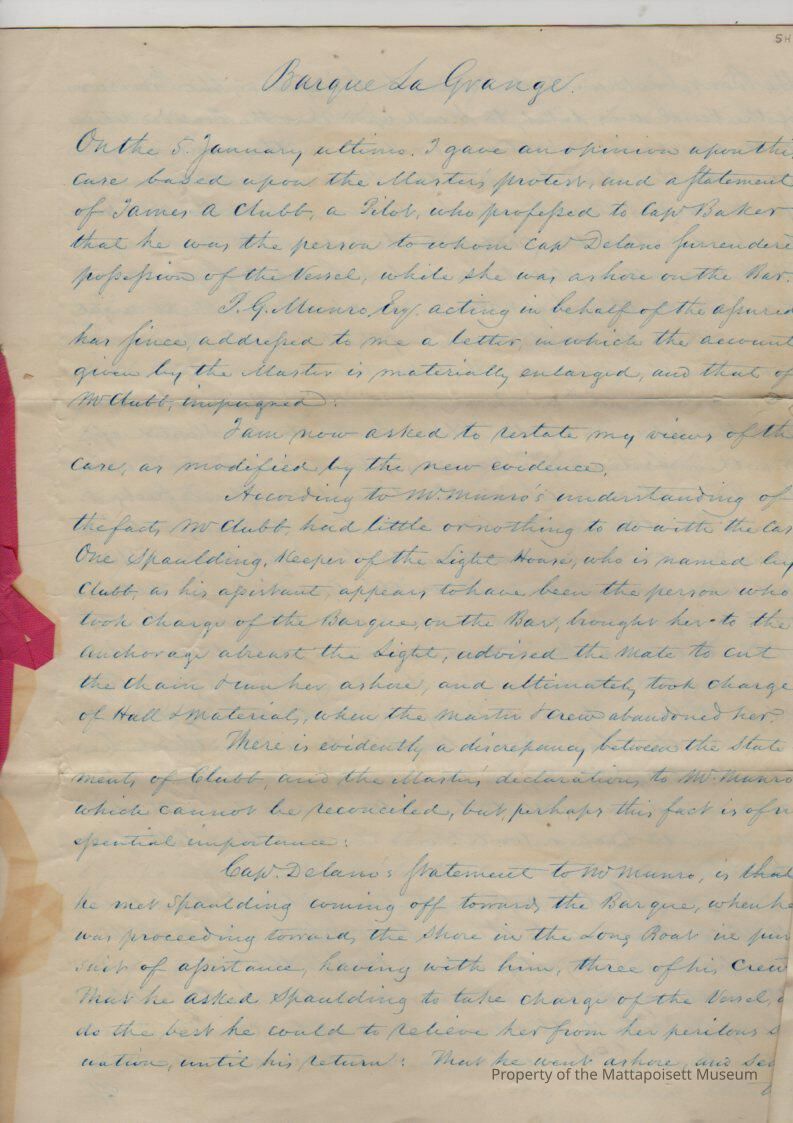 SH
Barque La Grange.
On the 5. January, ultimo. I gave an opinion upon this
case based upon the Master's protest, and a statement
of James A Clubb, a Pilot, who professed to Capt Baker
that he was the person to whom Capt Delano surrendere
possession of the Vessel, while she was ashore on the Bar.
Munro, Esq. acting in behalf of the assured
has since, addressed to me a letter, in which the account
given by the Master is materially enlarged, and that of
Mr Clubb, impugned:
I am now asked to restate my views of th
case, as modified by the new evidence.
According to Mr. Munro's understanding of
the facts, Mr Clubb, had little or nothing to do with the Cas
One Spaulding, Keeper of the Light House, who is named by
Clubb, as his assistant, appears to have been the person who
took charge of the Barque, on the Bar, brought her to the
anchorage abreast the Light, advised the Mate to cut
the chain & run her ashore, and ultimately took charge
of Hull & Materials, when the Master & crew abandoned her.
There is evidently a discrepancy between the State
ments of Clubb, and the Master's declaration, to Mr. Munro
which cannot be reconciled, but perhaps this fact is of n
essential importance:
Capt. Delano's Statement to Mr Munro, is that
he met Spaulding coming off towards the Barque, when he
was proceeding towards the shore in the Long Boat in pur
suit of assistance, having with him, three of his Crew
That he asked Spaulding to take charge of the Vessel, a
do the best he could to relieve her from her perilous s
uation, until his return: That he went ashore, and sen
Property of the Mattapoisett Museum